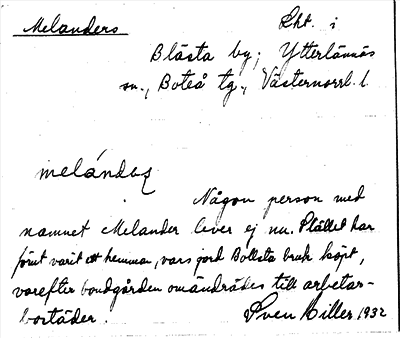 Melanders
Lht. i
Blästa by, Ytterlännäs
sn., Boteå tg., Västernorrl. l.
melándaʃ
Någon person med
namnet Melander lever ej nu. Stället har
förut varit ett hemman, vars jord Bollsta bruk köpt,
varefter bondgården omändrades till arbetar-
bostäder. Sven Hiller 1932